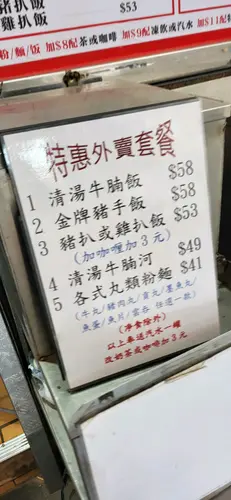 豬扒飯
雞扒飯
$53
粉/麵/飯 加$8配茶或咖啡 加$9配凍飲或汽水 加$11配
特惠外賣套餐
1 清湯牛腩飯 $58
2 金牌豬手飯 $58
3 豬扒或雞扒飯 $53
(加咖喱加3元)
4 清湯牛腩河 $49
5 各式丸類粉麵 $41
(牛丸/豬肉丸/貢丸/墨魚丸/
魚蛋/魚片/雲吞 任選一款)
(淨食除外)
以上奉送汽水一罐
改奶茶或咖啡加3元